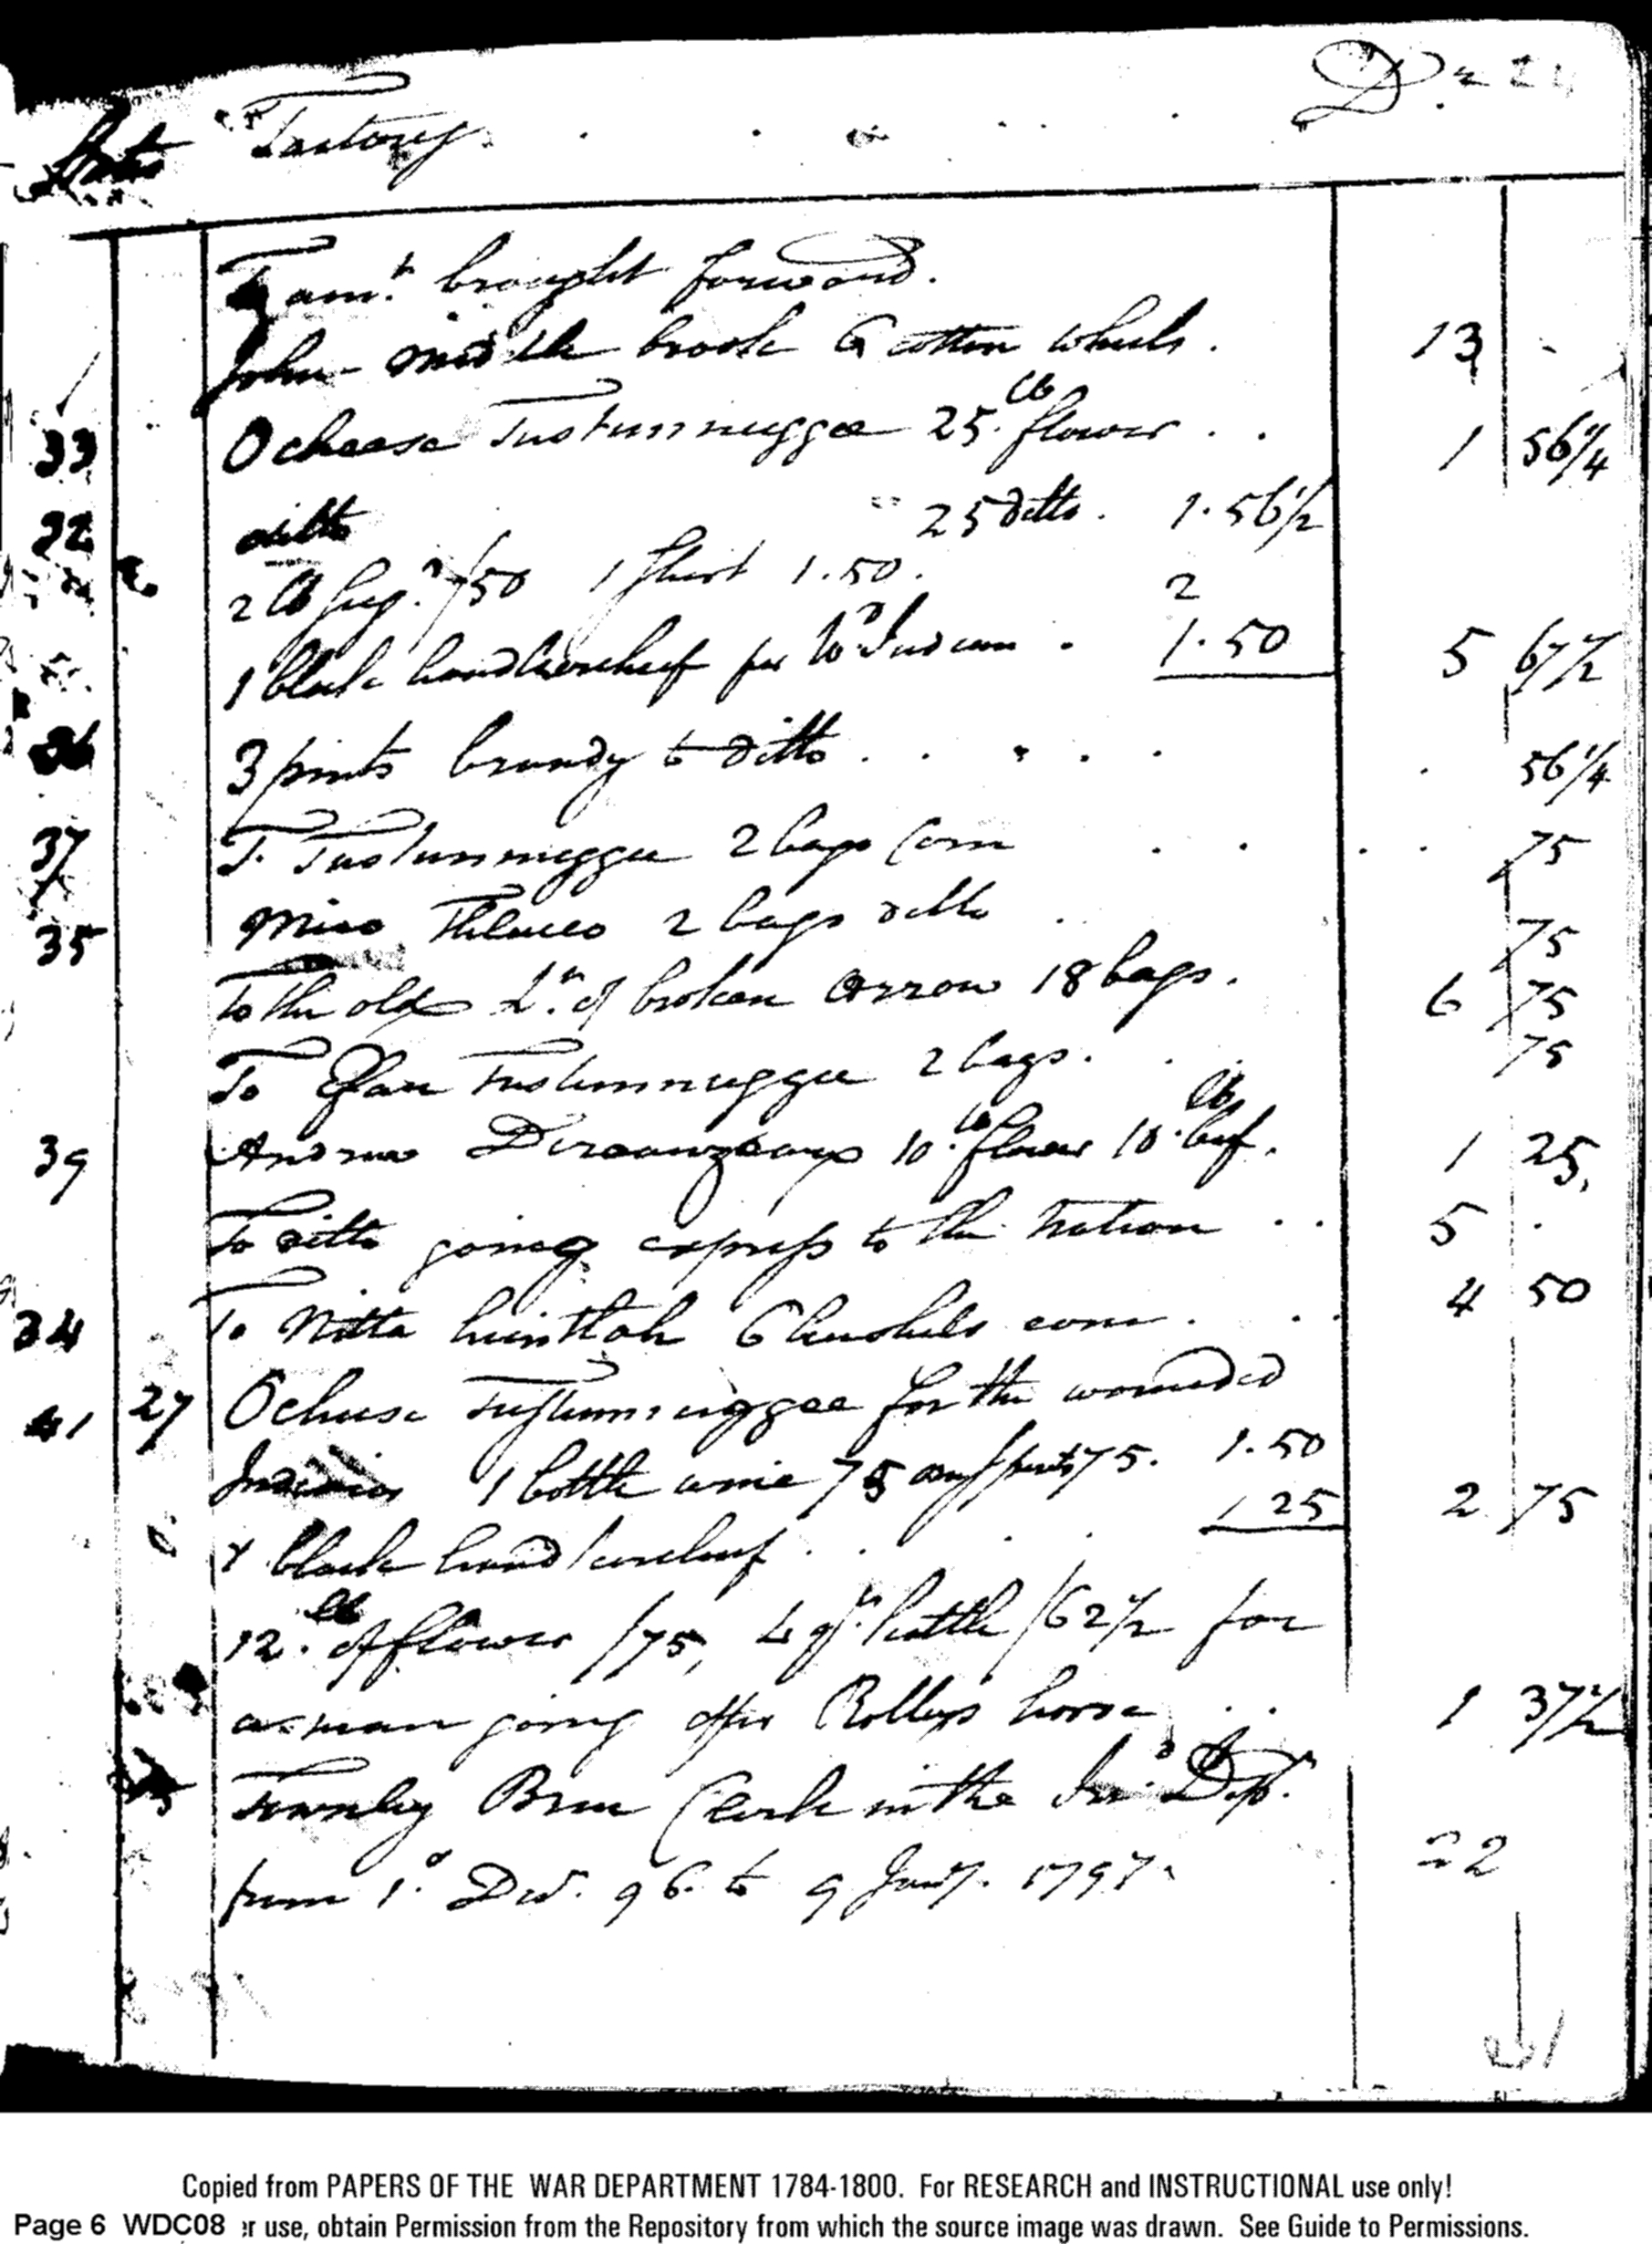 Factory . . . . . Dr 24
To amt. brought forward.
John Middlebrook 6 cotton wheels. 13 -
33 Ocheese Tustunnuggee 25 lb flower . . 1 56 1/4
32 ditto 25 ditto. 1.56 1/2
2 lb sug.r /50 1 shirt 1.50. 2
1 black handkerchief for Wd Indian . 1.50 5 67 1/2
36 3 pints brandy to ditto . . . . . 56 1/4
37 T. Tustunnuggee 2 bags corn . . . . 75
35 Mico Thlucco 2 bags ditto . 75
To the old Ln. of broken arrow 18 bags. 6 75
To Efau Tustunnuggee 2 bags. . . 75
39 Andrew 10 lb flower 10 lb beef. 1 25
To ditto going express to the nation . . 5 .
34 To Nitta huntlah 6 bushels corn . . . 4 50
41 27 Ocheese Tustunnuggee for the wounded
Indian 1 bottle wine 75 75. 1.50
1 black handkercheif . . . . 1 25 2 75
12 lb of flower /75, 4 qt kettle /62 1/2 for
a man going after Rollys horse . . 1 37 1/2
Townly Bruce Clerk in the In.d Dept.
from 1.o Decr. 96. to 9 Jany. 1797 22
Copied from PAPERS OF THE WAR DEPARTMENT 1784-1800. For RESEARCH and INSTRUCTIONAL use only!
Page 6 WDC08 er use, obtain Permission from the Repository from which the source image was drawn. See Guide to Permissions.